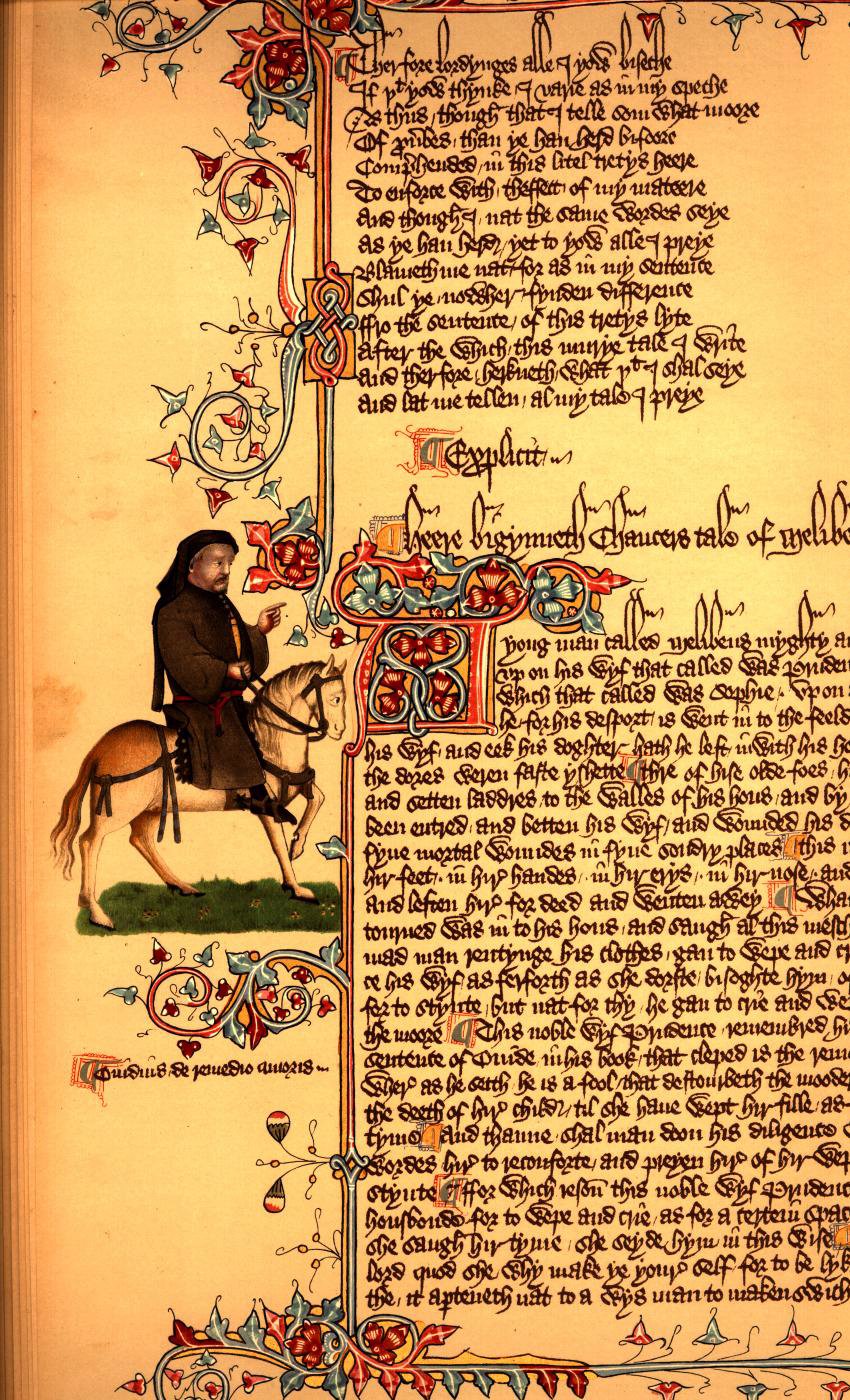 Therfore lordynges alle I yow biseche
If yt yow thynke I varie as in my speche
As thus though that I telle som what moore
Of prouerbes than ye han herd bifoore
Comprehended in this litel tretys heere
To enforce with theffect of my mateere
And though I nat the same wordes seye
As ye han herd yet to yow alle I preye
Blameth me nat for as in my sentence
Shul ye nowher fynden difference
ffro the sentence of this tretys lyte
After the which this murye tale I write
And therfore herkneth what yt I shal seye
And lat me tellen al my tale I preye
Explicit
Heere bigynneth Chaucers tale of Melibe
A yong man called Melibeus myghty
vp on his wyf that called was Pruden
which that called was Sophie vpon
he for his desport is went in to the feeld
his wyf and eek his doghter hath he left inwith his
the dores weren faste yshette Thre of hise olde foes
and setten laddres to the walles of his hous and by
been entred and betten his wyf and wounded his
fyue mortal woundes in fyue sondry places This
hir feet in hir handes in hir erys in hir nose and
and leften hir for deed and wenten awey Whan
torned was in to his hous and saugh al this mesch
mad man rentynge his clothes gan to wepe and
ce his wyf as ferforth as she dorste bisoghte hym
for to stynte but nat for thy he gan to crie and we
the moore This noble wyf Prudence remembred
sentence of Ouide in his book that cleped is the
wher as he seith he is a fool that destourbeth the mooder
the deeth of hir child til she haue wept hir fille as
tyme And thanne shal man doon his diligence
wordes hir to reconforte and preyen hir of hir wep
stynte ffor which resoun this noble wyf Prudenc
housbonde for to wepe and crie as for a certein spac
she saugh hir tyme she seyde hym in this wise
lord quod she why make ye youre self for to be lyk
the it aperteneth nat to a wys man to maken swich
Ouidius de remedio amoris